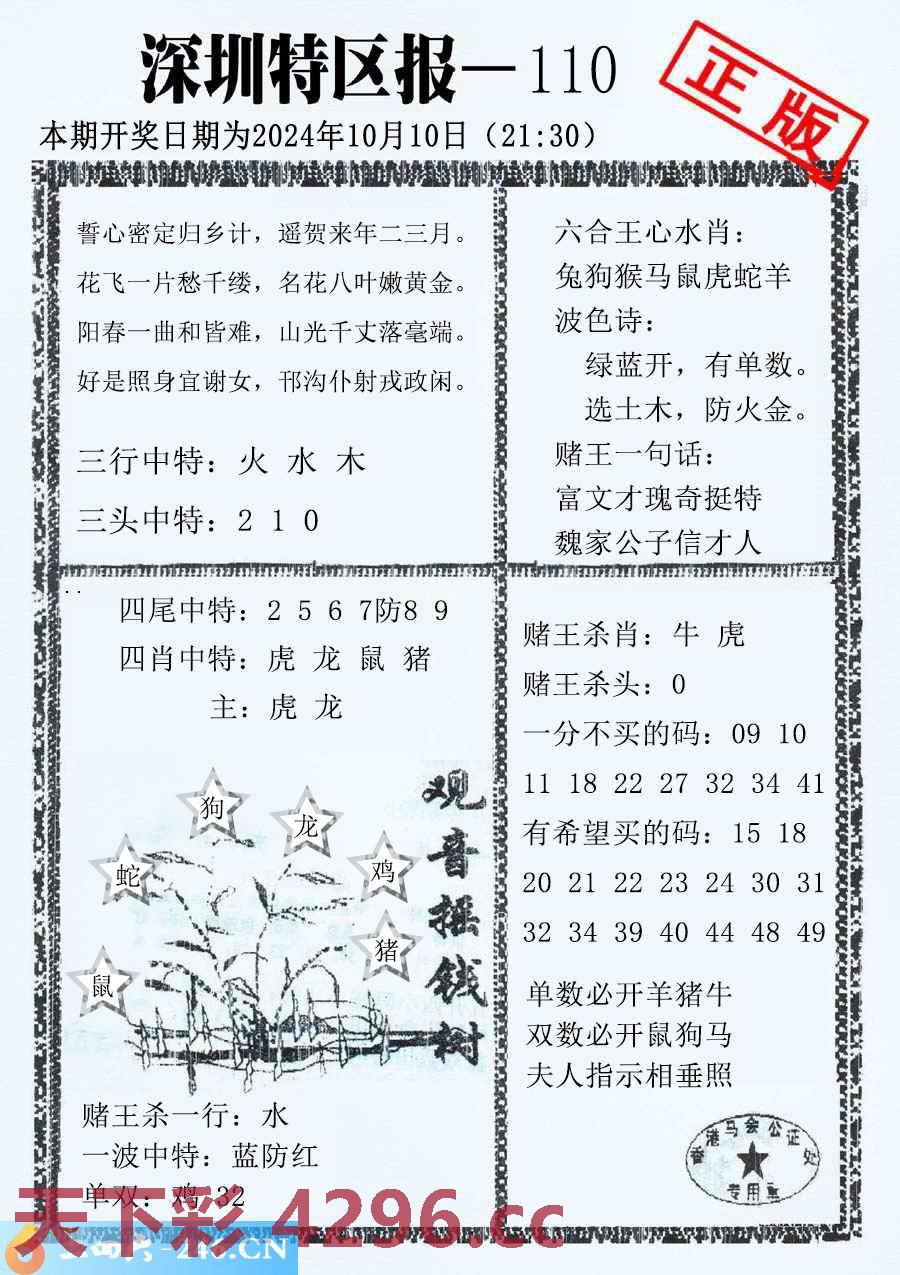 深圳特区报—110
正版
本期开奖日期为2024年10月10日（21:30）
誓心密定归乡计，遥贺来年二三月。
花飞一片愁千缕，名花八叶嫩黄金。
阳春一曲和皆难，山光千丈落毫端。
好是照身宜谢女，邗沟仆射戎政闲。
三行中特：火 水 木
三头中特：2 1 0
六合王心水肖：
兔狗猴马鼠虎蛇羊
波色诗：
绿蓝开，有单数。
选土木，防火金。
赌王一句话：
富文才瑰奇挺特
魏家公子信才人
四尾中特：2 5 6 7防8 9
四肖中特：虎 龙 鼠 猪
主：虎 龙
狗
龙
蛇
鸡
猪
鼠
观音摇钱树
赌王杀一行：水
一波中特：蓝防红
单双：鸡 32
赌王杀肖：牛 虎
赌王杀头：0
一分不买的码：09 10
11 18 22 27 32 34 41
有希望买的码：15 18
20 21 22 23 24 30 31
32 34 39 40 44 48 49
单数必开羊猪牛
双数必开鼠狗马
夫人指示相垂照
香港马会公证处
专用章
天下彩 4296.cc
246.CN